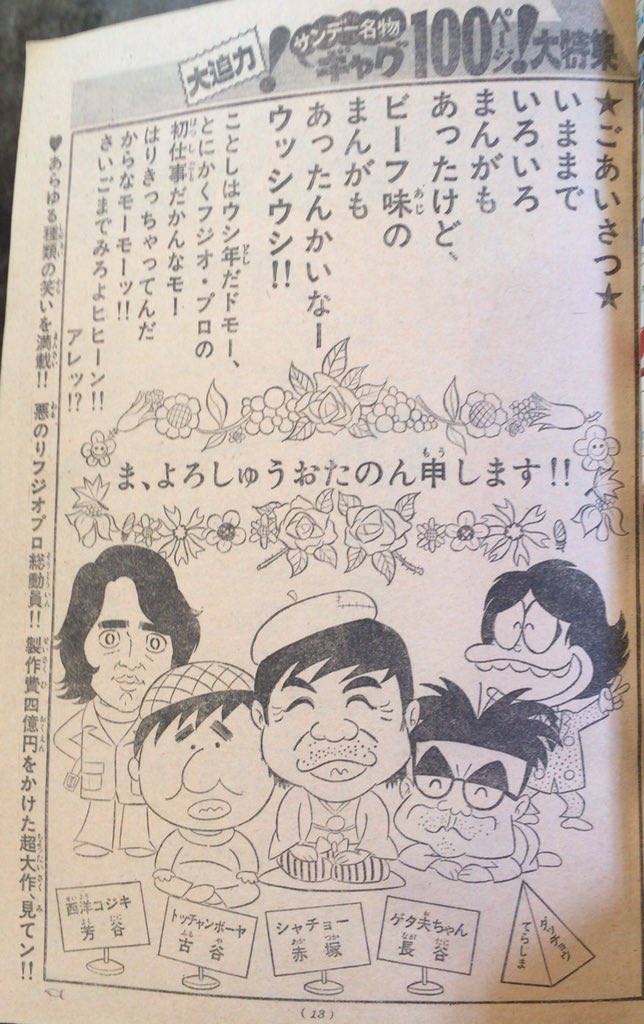 大迫力!サンデー名物ギャグ100ページ!大特集
★ごあいさつ★
いままで
いろいろ
まんがも
あったけど、
ビーフ味の
まんがも
あったんかいなー
ウッシウシ!!
ことしはウシ年だドモー、
とにかくフジオ・プロの
初仕事だかんなモー
はりきっちゃってんだ
からなモーモーッ!!
さいごまでみろよヒヒーン!!
アレッ!?
ま、よろしゅうおたのん申します!!
♥あらゆる種類の笑いを満載!! 悪のりフジオプロ総動員!! 製作費四億円をかけた超大作、見てン!!
西洋コジキ
芳谷
トッチャンボーヤ
古谷
シャチョー
赤塚
ゲタ夫ちゃん
長谷
てらしま
(13)